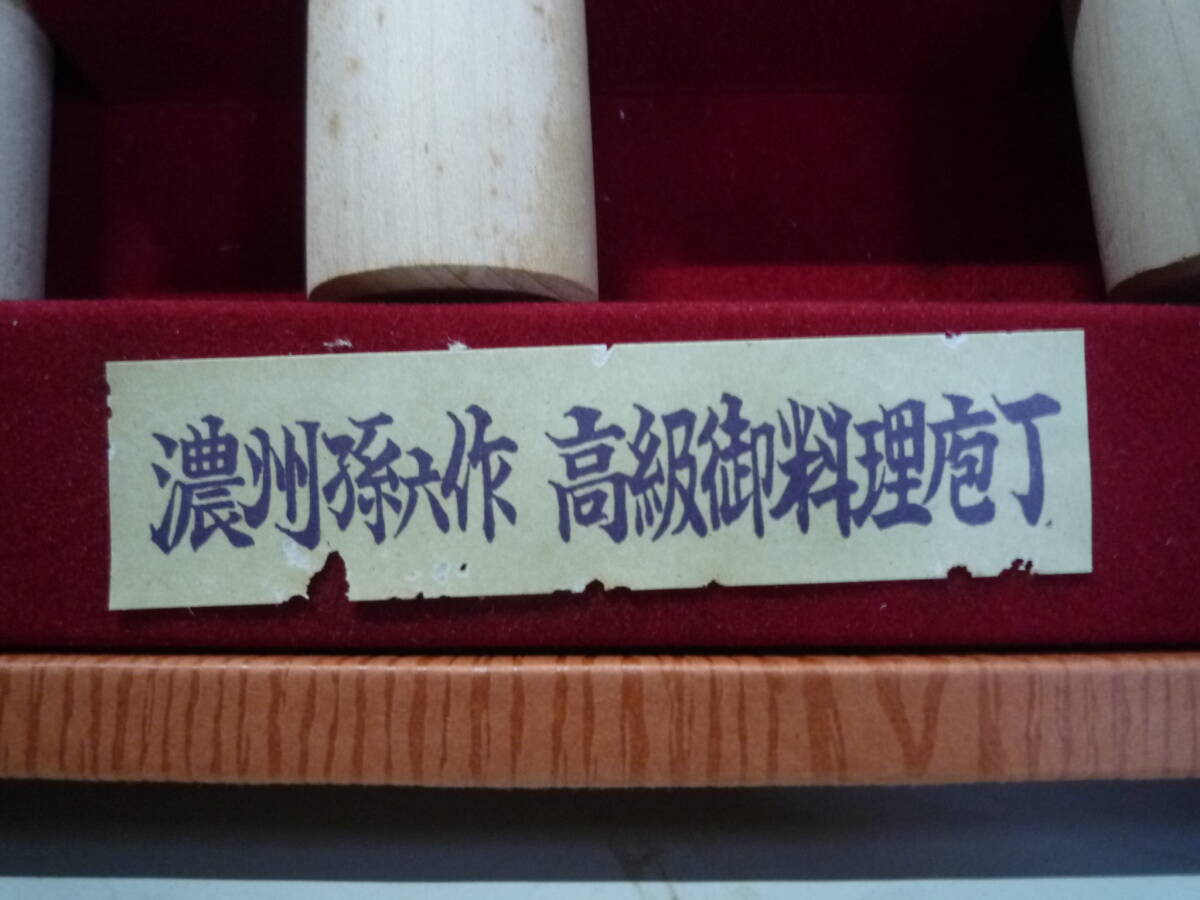 濃州孫六作 高級御料理庖丁